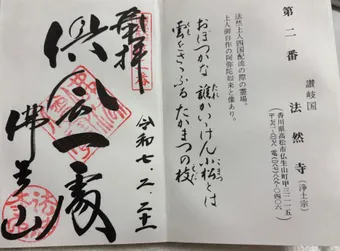 第二番
讃岐国
法然寺(浄土宗)
(香川県高松市仏生山町甲三二一五
法然上人四国配流の際の霊場。
上人御自作の阿弥陀如来と像あり。
おぼつかな 誰かいけん小松とは
雲をさゝふる たかまつの枝
奉拝
倶会一処
佛生山
令和七.二.二十一